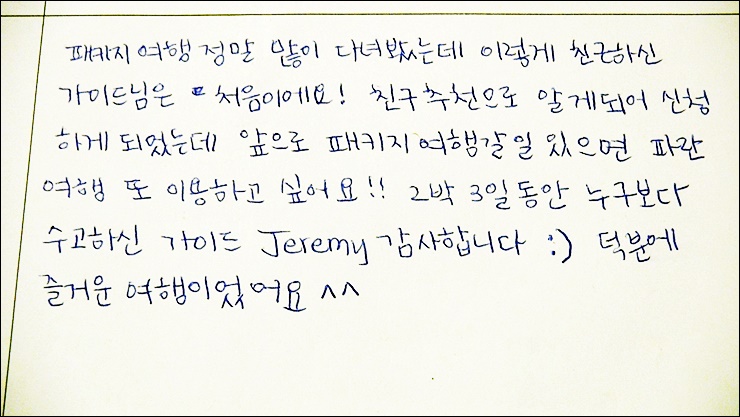 패키지 여행 정말 많이 다녀봤는데 이렇게 친근하신
가이드님은 처음이에요! 친구추천으로 알게되어 신청
하게 되었는데 앞으로 패키지여행갈일 있으면 파란
여행 또 이용하고 싶어요!! 2박 3일동안 누구보다
수고하신 가이드 Jeremy 감사합니다 :) 덕분에
즐거운 여행이었어요 ^^